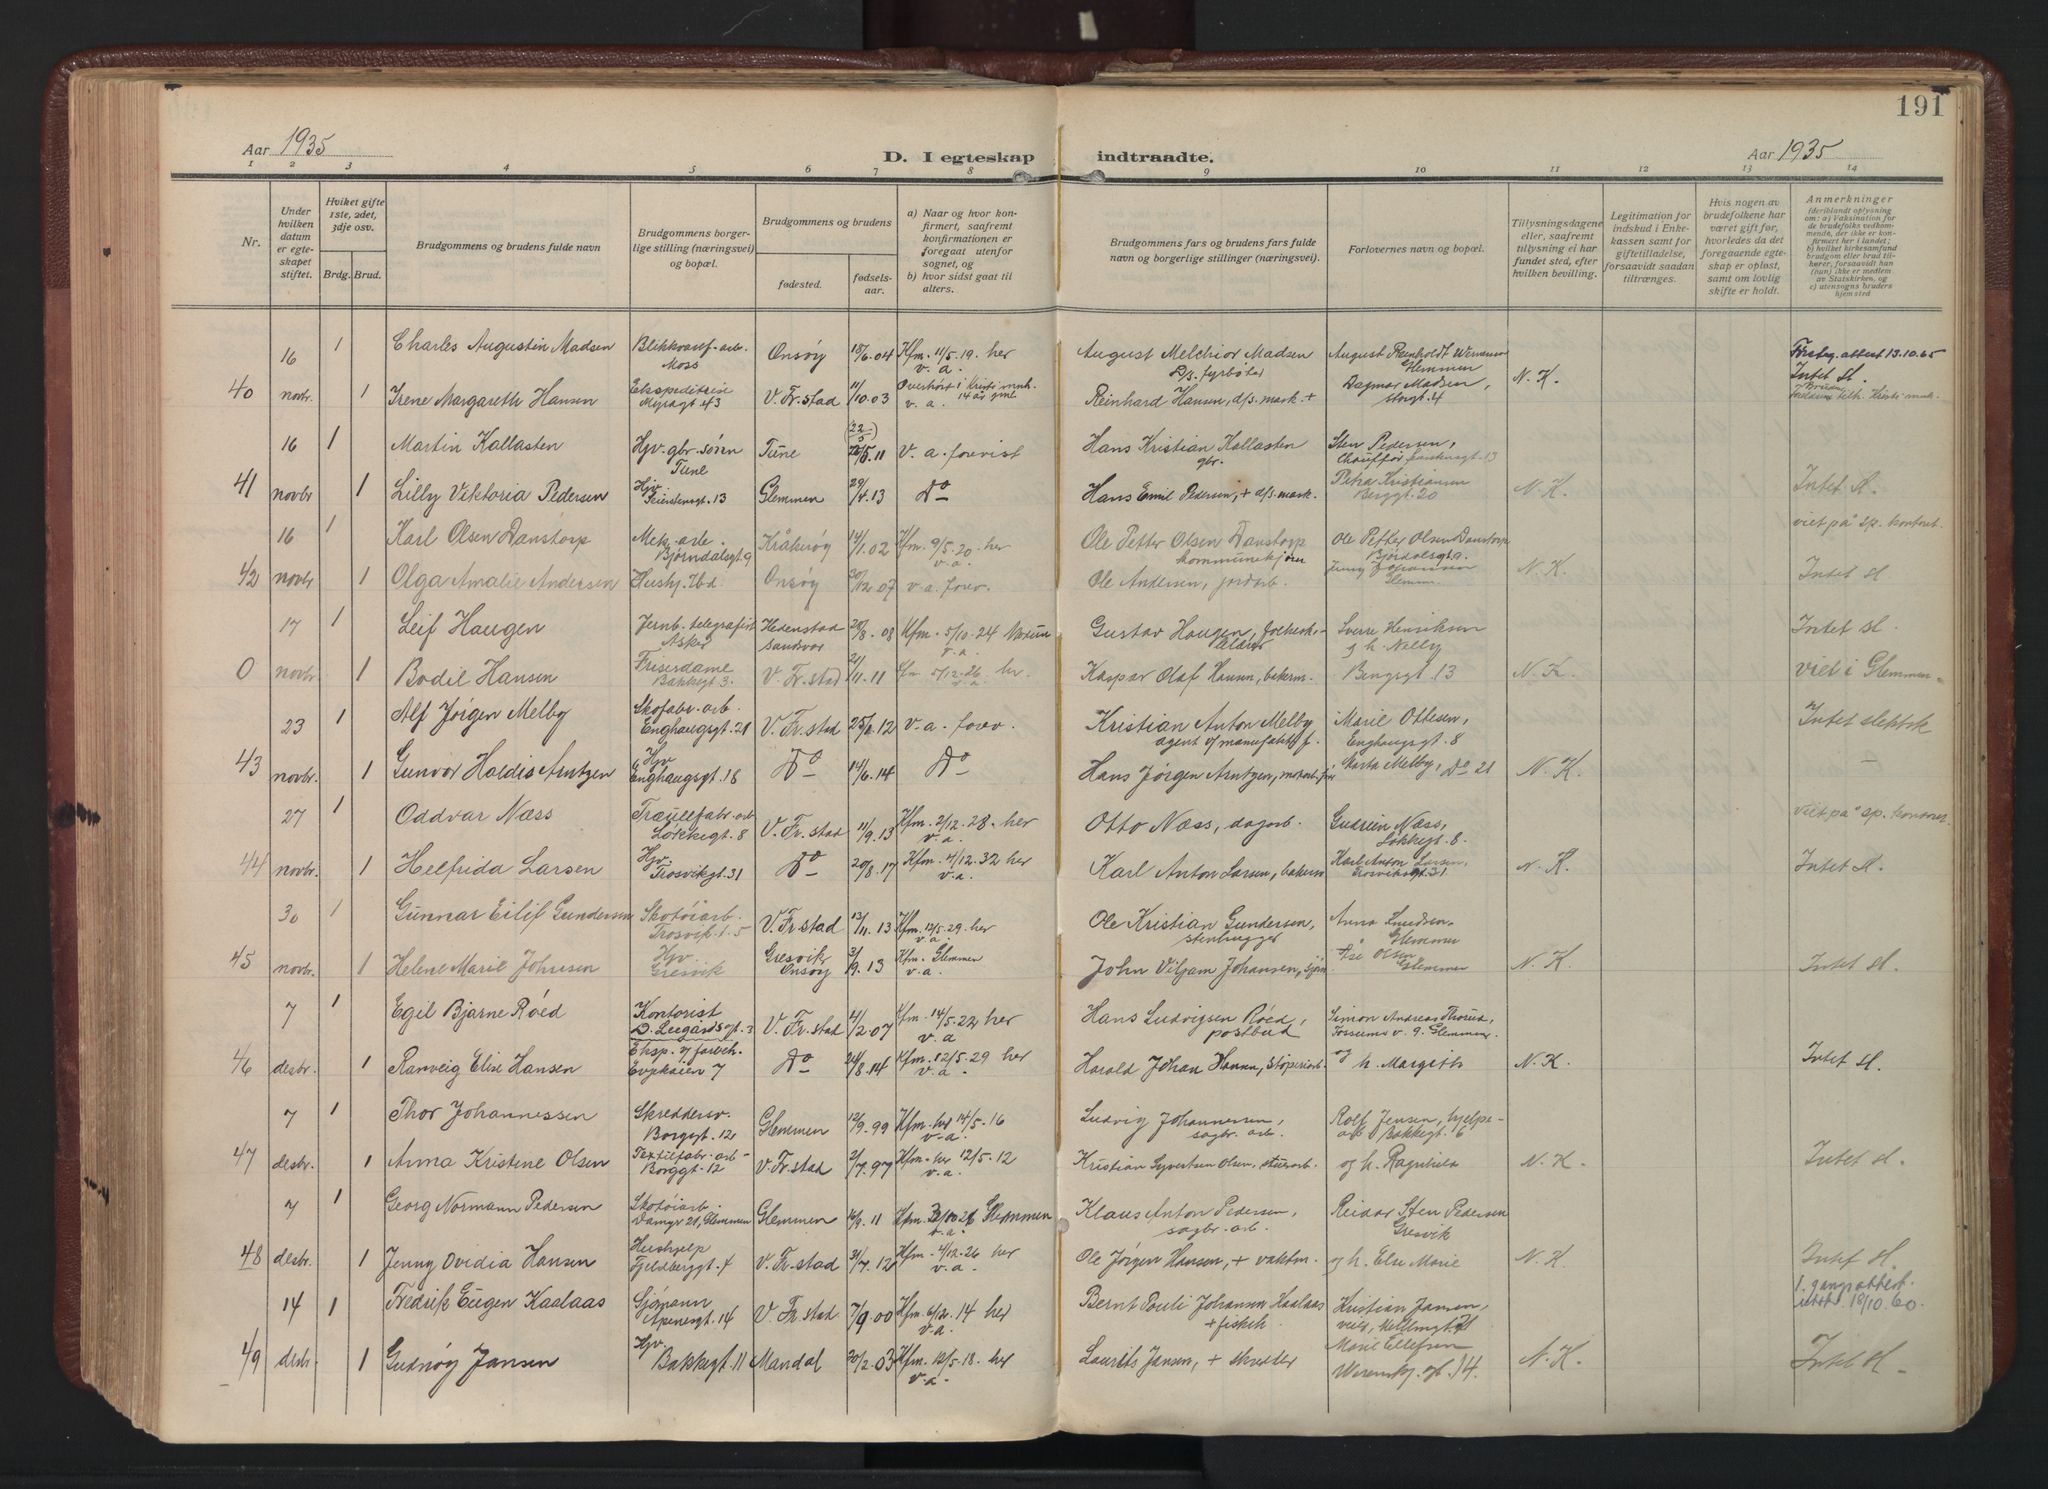 191
Aar 1935
D. I egteskap indtraadte.
Aar 1935
1 2 3 4 5 6 7 8 9 10 11 12 13 14
Nr.
Under hvilken datum er egteskapet stiftet.
Hviket gifte 1ste, 2det, 3dje osv.
Brdg. Brud.
Brudgommens og brudens fulde navn
Brudgommens borgerlige stilling (næringsvei) og bopæl.
Brudgommens og brudens
fødested.
fødselsaar.
a) Naar og hvor konfirmert, saafremt konfirmationen er foregaat utenfor sognet, og
b) hvor sidst gaat til alters.
Brudgommens fars og brudens fars fulde navn og borgerlige stillinger (næringsvei).
Forlovernes navn og bopæl.
Tillysningsdagene eller, saafremt tillysning ei har fundet sted, efter hvilken bevilling.
Legitimation for indskud i Enkekassen samt for giftetilladelse, forsaavidt saadan tiltrænges.
Hvis nogen av brudefolkene har været gift før, hvorledes da det foregaaende egteskap er opløst, samt om lovlig skifte er holdt.
Anmerkninger
(deriblandt oplysning om: a) Vaksination for de brudefolks vedkommende, der ikke er konfirmert her i landet; b) hvilket kirkesamfund brudgom eller brud tilhører, forsaavidt han (hun) ikke er medlem av Statskirken, og c) utensogns bruders hjemsted
16 1 Charles Augustin Madsen Moss Onsøy 18/6.04 Kfm. 11/5.19. her v. a. August Melchior Madsen D/s. fyrbøter August Reinholdt Glemmen attest 13.10.65
40 novbr 1 Irene Margareth Hansen Ekspeditrise V. Fr.stad 11/10.03 Overhørt i Kristi menh. v. a. 14 år gml Reinhard Hansen, d/s. mask. + Dagmar Madsen, Storgt. 4 N. K. Intet sl.
16 1 Martin Kallasten Hjv. gbr. sønn Tune Tune (22/5) /5 11 v. a. forrist Hans Kristian Kallasten gbr. Sten Pedersen,
41 novbr 1 Lilly Viktoria Pedersen Hjv. 13 Glemmen 29/4.13 Do Hans Emil Pedersen, + d/s. mask. Petra Kristiansen Berggt. 20 N. K. Intet sl.
16 1 Karl Olsen Danstorp Mek. arb. Bjørndalsgt 9 Kråkerøy 14/1.02 Kfm. 9/5.20. her v. a. Ole Petter Olsen Danstorp Ole Petter Olsen Danstorp viet på sp. kontoret.
42 novbr 1 Olga Amalie Andersen Hushj. Ibd. Onsøy 30/12.07 v. a. forr. Ole Andersen, jordarb. Jenny Johansen Glemmen N. K. Intet sl
17 1 Leif Haugen Jernb. telegrafist Asker Hedenstad Sandsvær 28/8.08 Kfm. 5/10.24 v. a. Gustav Haugen, Sverre Henriksen og h. Nelly Intet sl.
0 novbr 1 Bodil Hansen Friserdame Bakkegt 3. V. Fr.stad 21/11.11 Kfm 5/12.26 her. v. a. Kaspar Olaf Hansen, bakerm. Bergsgt 13 N. K. viet i Glemmen
23 1 Alf Jørgen Melby Skofabr. arb. Enghaugsgt. 21 V. Fr.stad 25/1.12 v. a. forr. Kristian Anton Melby agent og manufakturf. Marie Ottesen, Enghaugsgt. 8 Intet slektsk
43 novbr. 1 Gunvor Haldis Arntzen Hjv Enghaugsgt. 18 Do 14/6.14 Do Hans Jørgen Arntzen, Marta Melby, Do 21 N. K.
27 1 Oddvar Næss Træullfabr. arb Løkkegt. 8 V. Fr.stad 11/9.13 Kfm. 2/12.28. her v. a. Otto Næss, dagarb. Gudrun Næss, Løkkegt. 8. Viet på sp. kontoret.
44 novbr. 1 Helfrida Larsen Hjv. Trosvikgt. 31 Do 20/8.17 Kfm. 4/12.32 her v. a. Karl Anton Larsen, bakerm Karl Anton Larsen, Trosvikgt 31 N. K. Intet sl.
30 1 Gunnar Eilif Gundersen Skotøiarb. Trosvik. 1. 5 V. Fr.stad 13/11.13 Kfm. 12/5.29. her v. a. Ole Kristian Gundersen, stenhugger Anna Knudsen Glemmen
45 novbr. 1 Helene Marie Johnsen Hjv. Gresvik Gresvik, Onsøy 3/9.13 Kfm. Glemmen v. a. John Viljam Johansen, Åse Olsen Glemmen N. K. Intet sl.
7 1 Egil Bjarne Røed Kontorist D. Leegårdsgt. 3 V. Fr.stad 4/2.07 Kfm. 14/5.22 her v. a Hans Ludvigsen Røed, postbud Simon Andreas Thorud, Fossums v. 9. Glemmen,
46 desbr. 1 Ranveig Elise Hansen Eksp. Evjekaien 7 Do 24/8.14 Kfm. 12/5.29 her v. a. Harald Johan Hansen, støperiarb. og h. Margith N. K. Intet sl.
7 1 Thor Johannessen Skreddersv. Borggt. 12 Glemmen 12/9.99 Kfm. her 14/5.16 v. a. Ludvig Johannessen, sagbr. arb. Rolf Jensen, hjelpearb Bakkegt. 6
47 desbr. 1 Anna Kristine Olsen Textilfabr. arb Borggt. 12 V. Fr.stad 2/7.97 Kfm. her 12/5.12 v. a. Kristian Syvertsen Olsen, stuerarb. og h. Ragnhild N. K. Intet sl.
7 1 Georg Normann Pedersen Skotøiarb. Damgv 21, Glemmen Glemmen 16/9.11 Kfm. Glemmen v. a. Klaus Anton Pedersen, sagbr. arb. Reidar Sten Pedersen Gresvik
48 desbr. 1 Jenny Ovidia Hansen Hushjelp Fjeldberggt. 4 V. Fr.stad 31/7.12 Kfm. 4/12.26 her v. a. Ole Jørgen Hansen, + vaktm. og h. Else Marie N. K. Intet sl.
14 1 Fredrik Eugen Kaalaas Sjømann Apenesgt. 14 V. Fr.stad 7/9.00 Kfm. 6/12.14 her v. a. Bernt Pauli Johansen Kaalaas + fiskeh. Kristian Jansen, 1. gangs attest utst. 18/10.60.
49 desbr 1 Gudnøy Jansen Hjv Bakkegt. 11 Mandal 20/2.03 Kfm. 12/5.18. her v. a. Laurits Jansen, + skredder Marie Ellefsen Werenskj. gt. 14. N. K. Intet sl